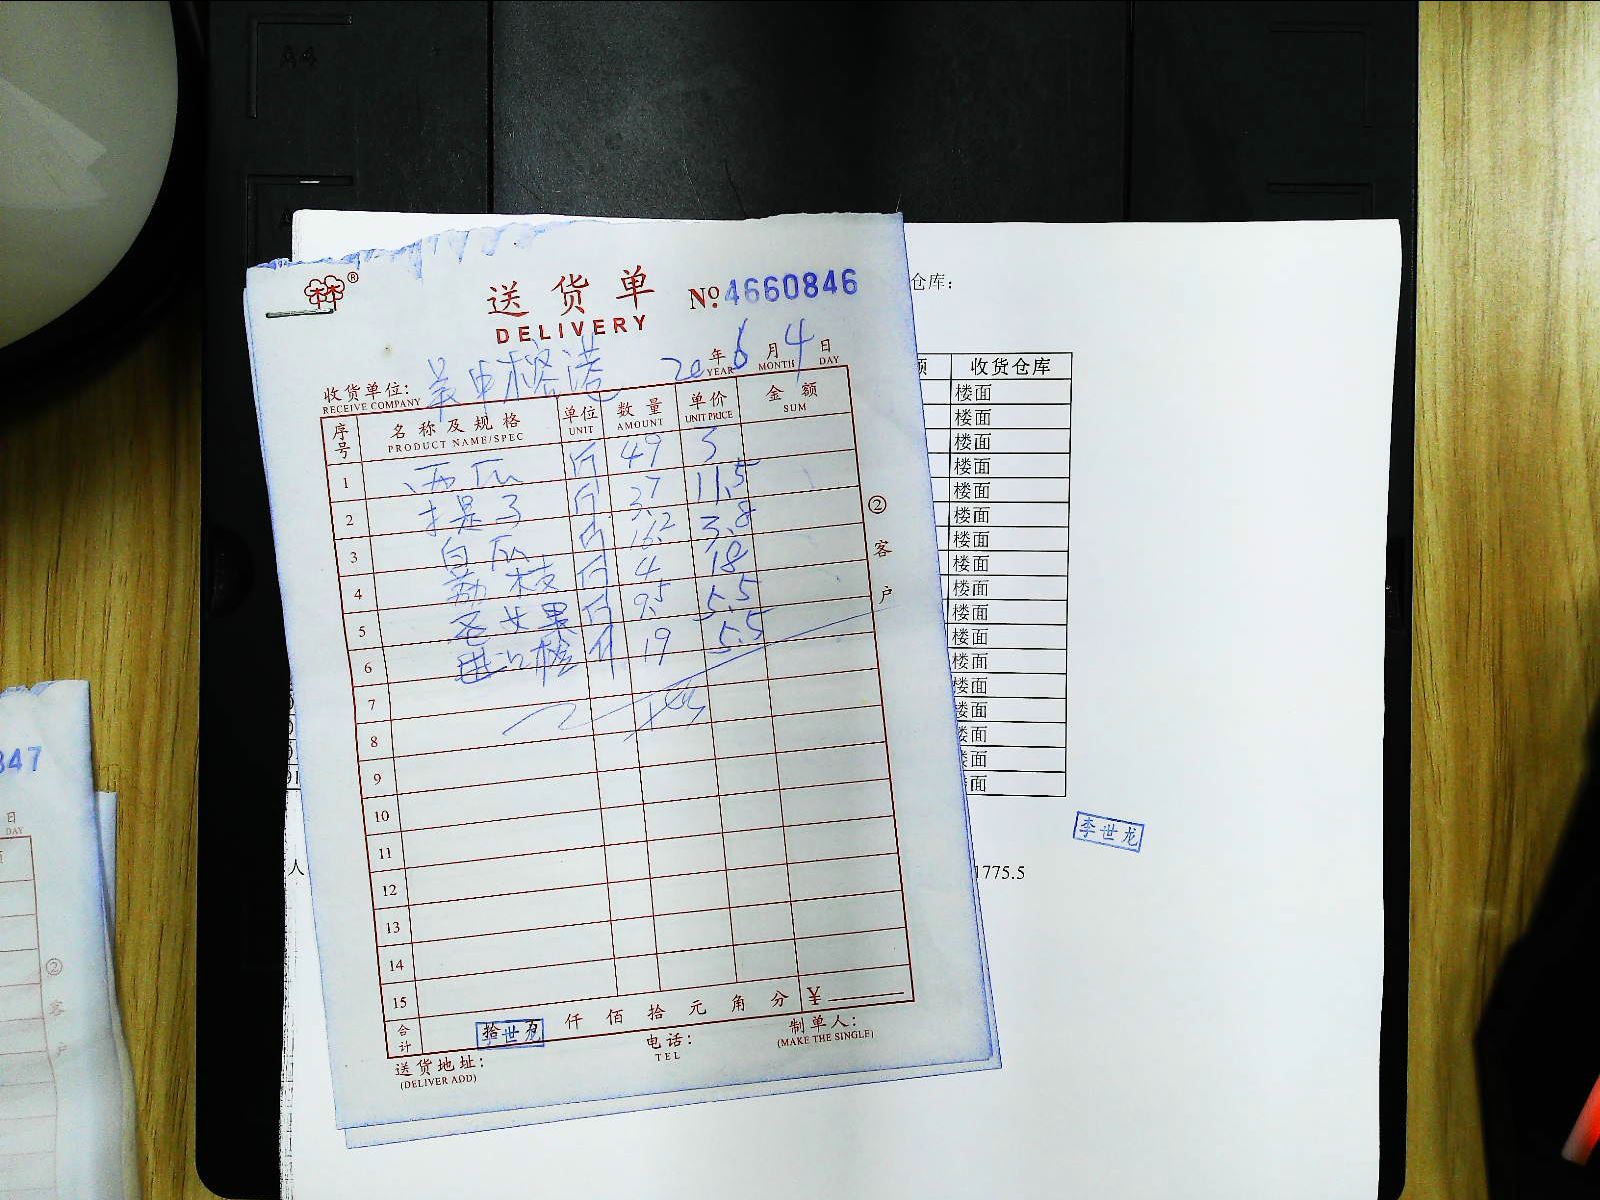 A4
送货单
DELIVERY
№ 4660846
20 年 6 月 4 日
YEAR MONTH DAY
收货单位：
RECEIVE COMPANY
序号 名称及规格 单位 数量 单价 金额
PRODUCT NAME/SPEC UNIT AMOUNT UNIT PRICE SUM
1 西瓜 斤 49 3
2 提子 斤 3.7 11.5
3 白瓜 斤 16.2 3.8
4 荔枝 斤 4 18
5 圣女果 斤 9.5 5.5
6 进口橙 斤 19 5.5
7
8
9
10
11
12
13
14
15
合计 拾 万 仟 佰 拾 元 角 分 ¥
李世龙
送货地址：
(DELIVER ADD)
电话：
TEL
制单人：
(MAKE THE SINGLE)
②客户
仓库：
收货仓库
楼面
楼面
楼面
楼面
楼面
楼面
楼面
楼面
楼面
楼面
楼面
楼面
楼面
楼面
楼面
楼面
面
李世龙
人
1775.5
847
日
DAY
②客户